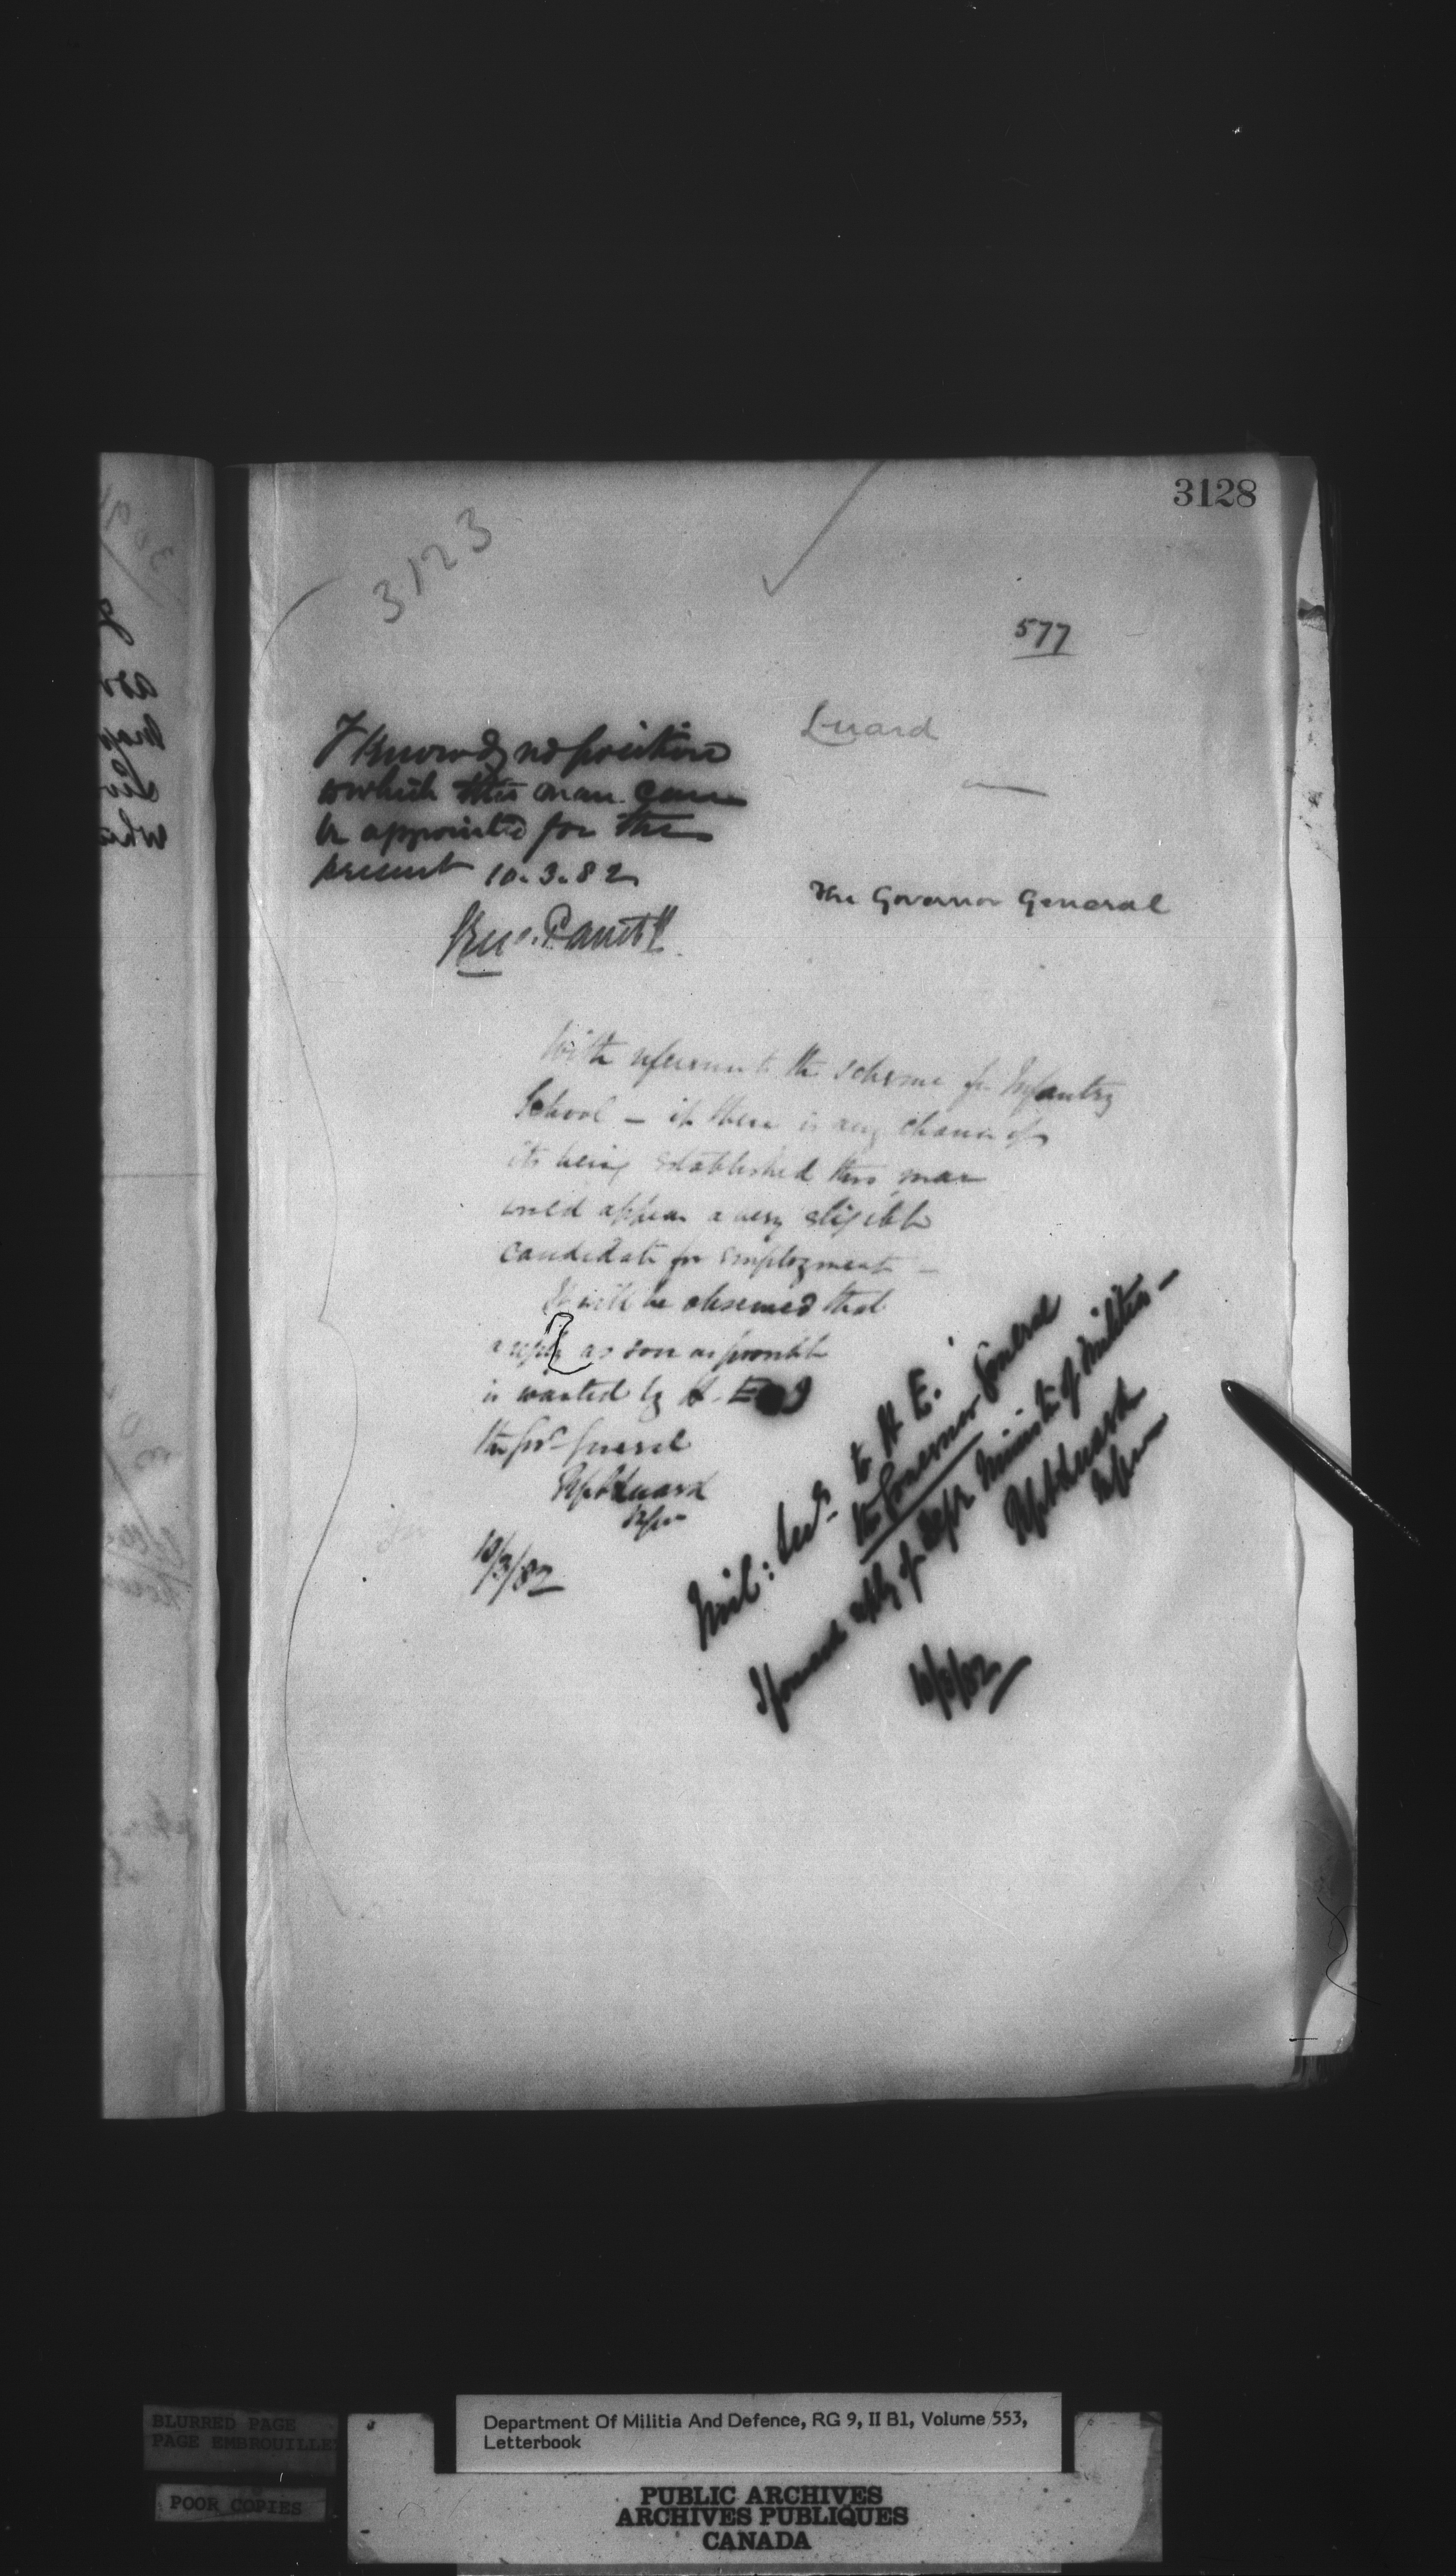 3128
3123
577
Luard
I know of no position
to which this man can
be appointed for the
present 10.3.82
Panet
The Governor General
With reference to the scheme for Infantry
School – if there is any chance of
its being established this man
would appear a very eligible
candidate for employment –
It will be observed that
a reply as soon as possible
is wanted by H. E
the Govr General
Luard
10/3/82
Mil: Secy. to H. E.
the Governor General
I forward reply of Depy Minister of Militia –
Luard
10/3/82
BLURRED PAGE
PAGE EMBROUILLE
POOR COPIES
Department Of Militia And Defence, RG 9, II B1, Volume 553,
Letterbook
PUBLIC ARCHIVES
ARCHIVES PUBLIQUES
CANADA